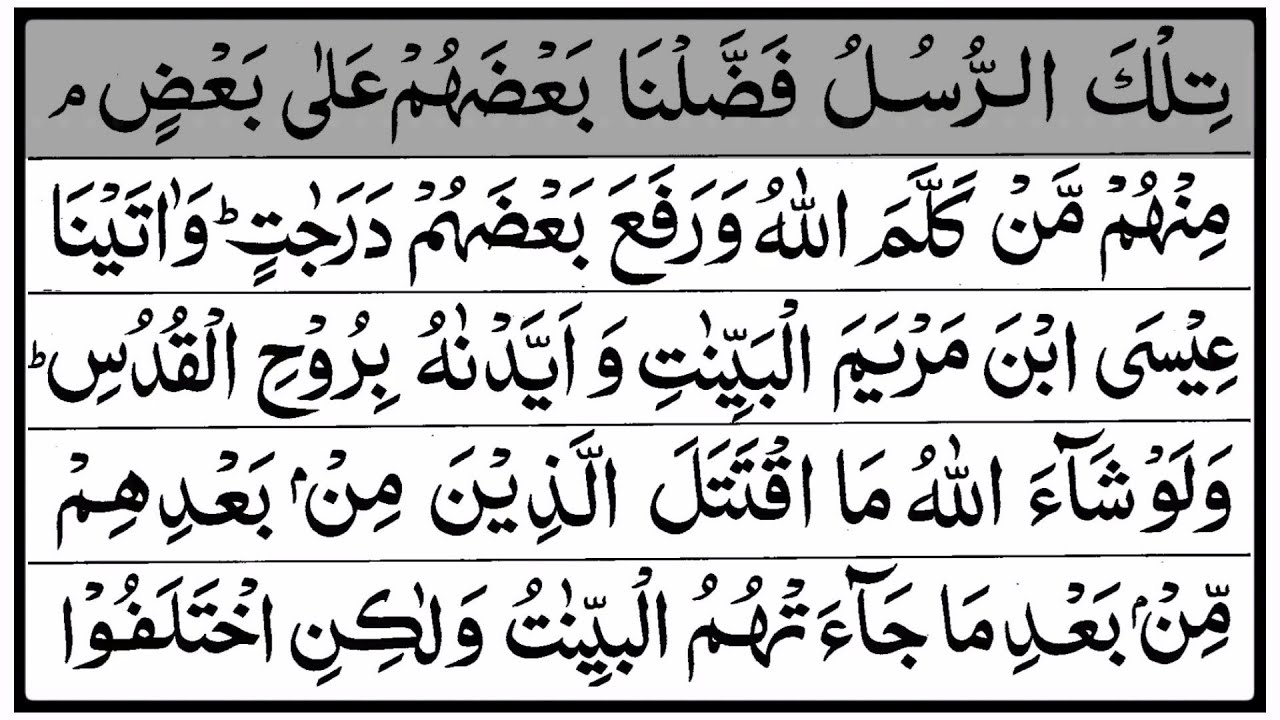 تِلْكَ الرُّسُلُ فَضَّلْنَا بَعْضَهُمْ عَلٰى بَعْضٍ ۘ
مِنْهُمْ مَّنْ كَلَّمَ اللّٰهُ وَرَفَعَ بَعْضَهُمْ دَرَجٰتٍ ؕ وَاٰتَيْنَا
عِيْسَى ابْنَ مَرْيَمَ الْبَيِّنٰتِ وَ اَيَّدْنٰهُ بِرُوْحِ الْقُدُسِ ؕ
وَلَوْ شَآءَ اللّٰهُ مَا اقْتَتَلَ الَّذِيْنَ مِنْۢ بَعْدِهِمْ
مِّنْۢ بَعْدِ مَا جَآءَتْهُمُ الْبَيِّنٰتُ وَلٰكِنِ اخْتَلَفُوْا